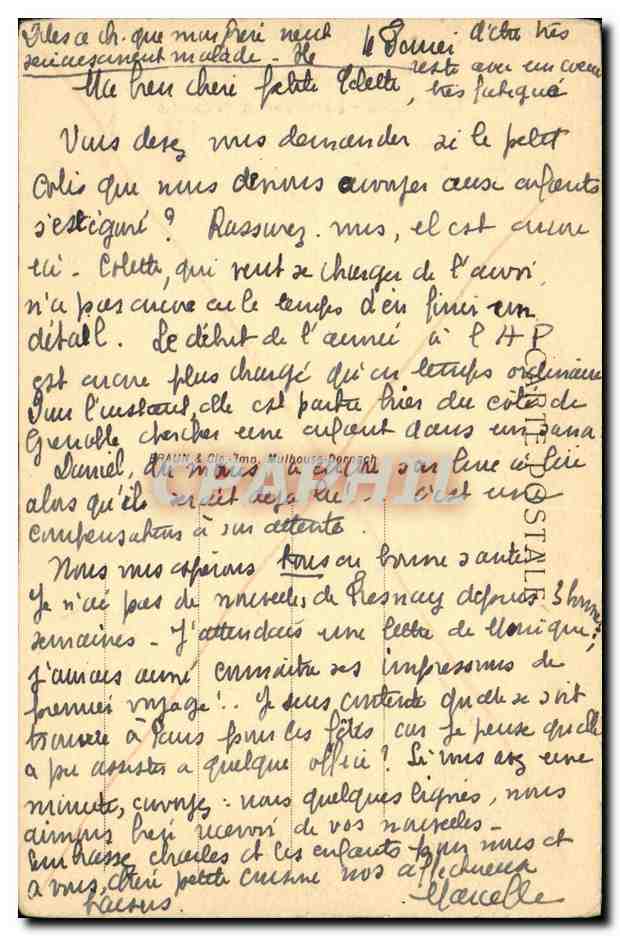 Dites à Ch. que mon frère vient d'être très
sérieusement malade - Il reste avec un coeur
très fatigué
16 Janvier
Ma bien chère petite Colette,
Vous devez vous demander si le petit
colis que nous devions envoyer aux enfants
s'est égaré ? Rassurez-vous, il est encore
ici - Colette, qui veut se charger de l'envoi,
n'a pas encore eu le temps d'en finir un
détail. Le début de l'année à l'A P
est encore plus chargé qu'en temps ordinaire
Pour l'instant, elle est partie hier du côté de
Grenoble chercher une enfant dans un sana
Daniel, du moins, a son livre à lui
alors qu'il serait déjà lu - c'est une
compensation à son attente.
Nous vous espérons tous en bonne santé
Je n'ai pas de nouvelles de Fresnay depuis 3 bonnes
semaines - J'attendais une lettre de Monique ;
j'aurais aimé connaître ses impressions de
premier voyage !.. Je suis contente qu'elle se soit
trouvée à Paris pour les fêtes car je pense qu'elle
a pu assister à quelque office ? Si vous avez une
minute, envoyez-nous quelques lignes, nous
aimons bien recevoir de vos nouvelles -
Embrassez Charles et les enfants pour nous et
à vous, chère petite cousine nos affectueux
baisers. Marcelle
CARTE POSTALE
BRAUN & Cie, Imp. Mulhouse-Dornach
CPAPHIL